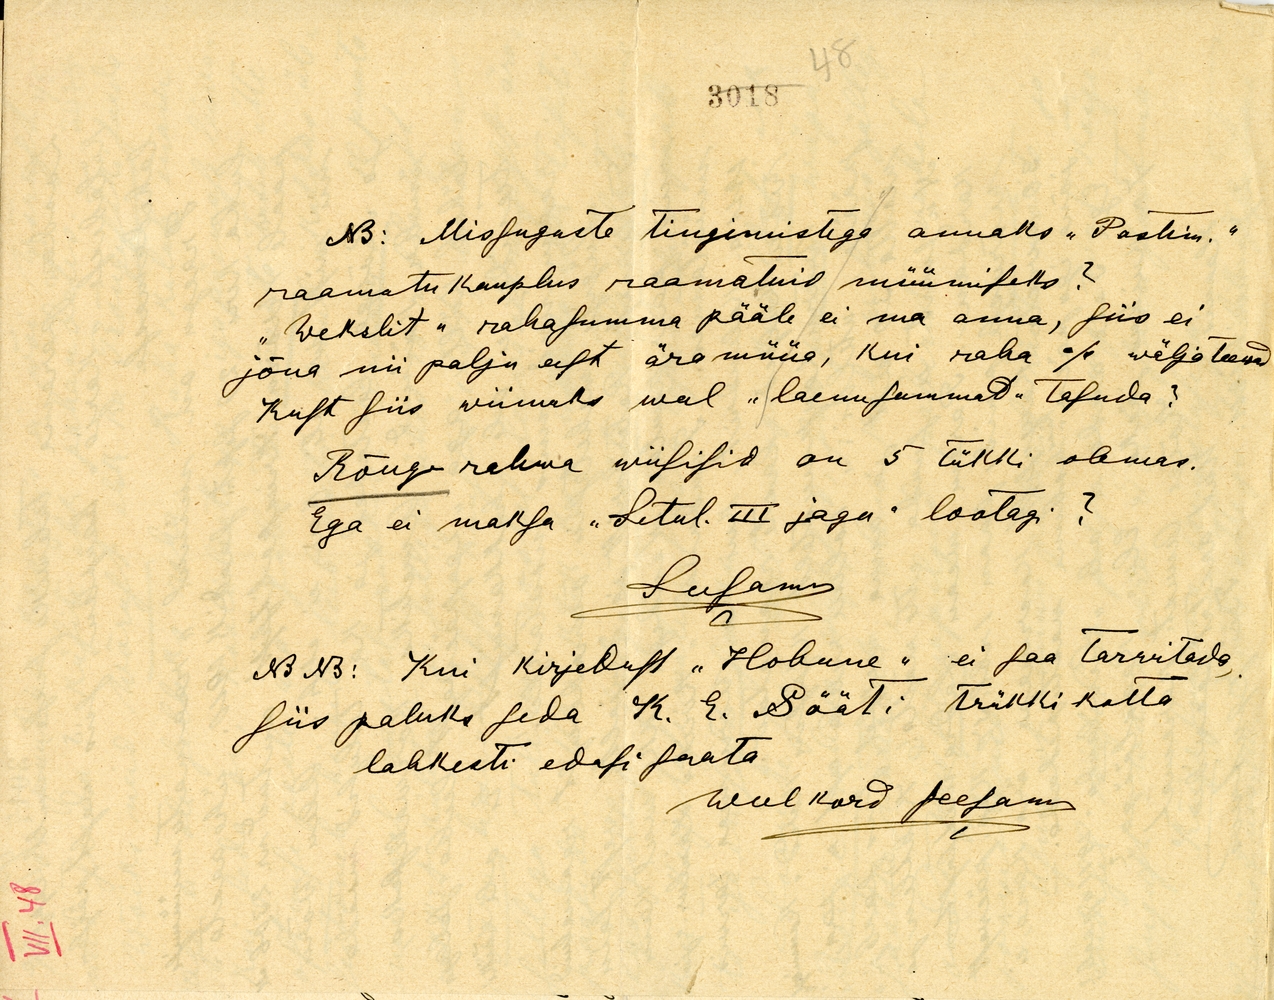 48
3018
NB: Missuguste tingimistega annaks „Postim.“
raamatukauplus raamatuid müümiseks?
„Wekslit“ rahasumma pääle ei ma anna, siis ei
jõua nii palju ast ära müüa, kui raha % wäljateewad
Kust siis wiimaks weel „laenusummad“ tasuda?
Rõuge rahwa wiisisid on 5 tükki olemas.
Ega ei maksa „Setul. III jagu“ lootagi?
Seesama
NB NB: Kui kirjedust „Hobune“ ei saa tarwitada,
siis paluks seda K. E. Sööti trükkikotta
lahkesti edasi saata
weel kord seesama
VII. 48